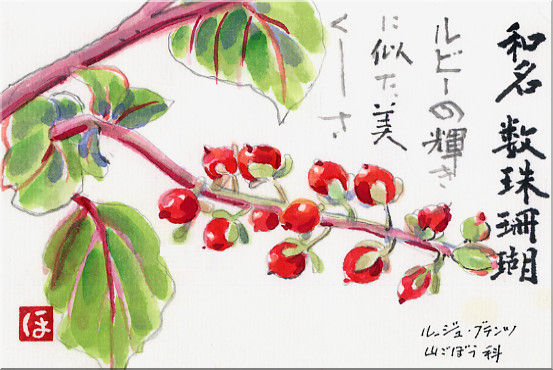 和名 数珠珊瑚
ルビーの輝き
に似た、美
くーさ
ルージュ・プランツ
山ごぼう科
ほ